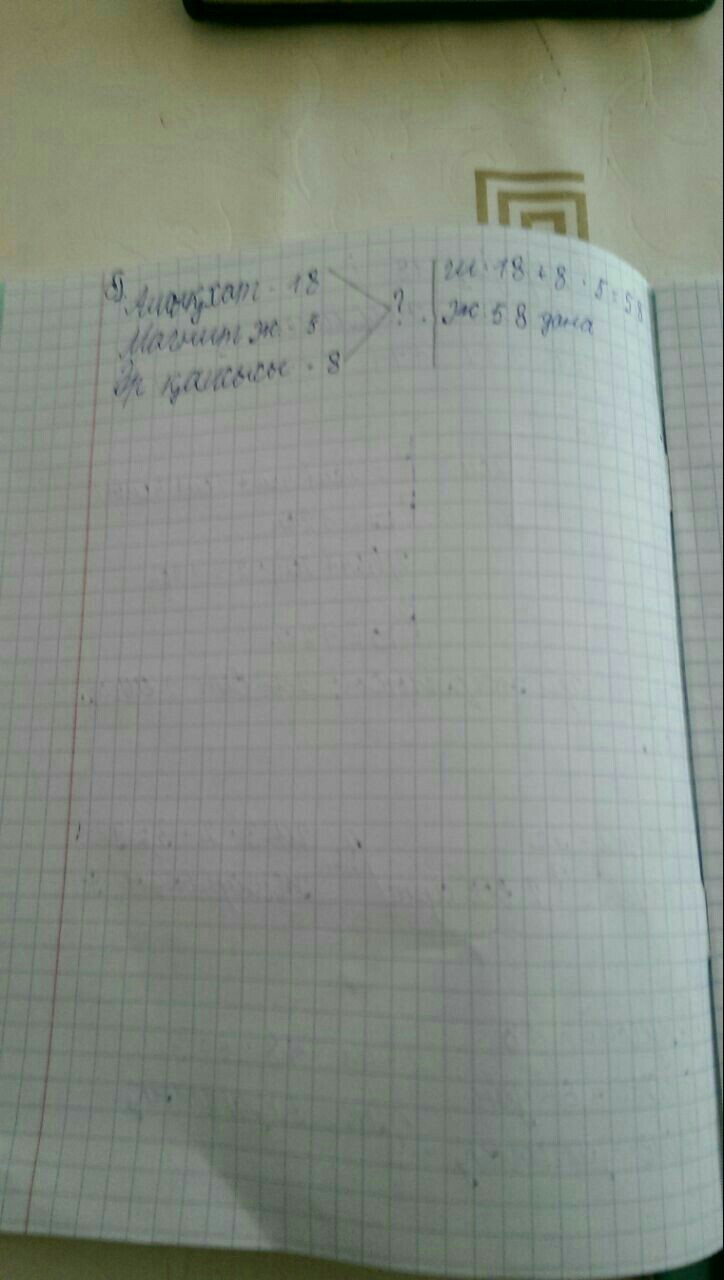 5)
Ашықхат - 18
Магнит ж - 8
Әр қайсысы - 8
?
Ш: 18 + 8 · 5 = 58
Ж: 58 дана